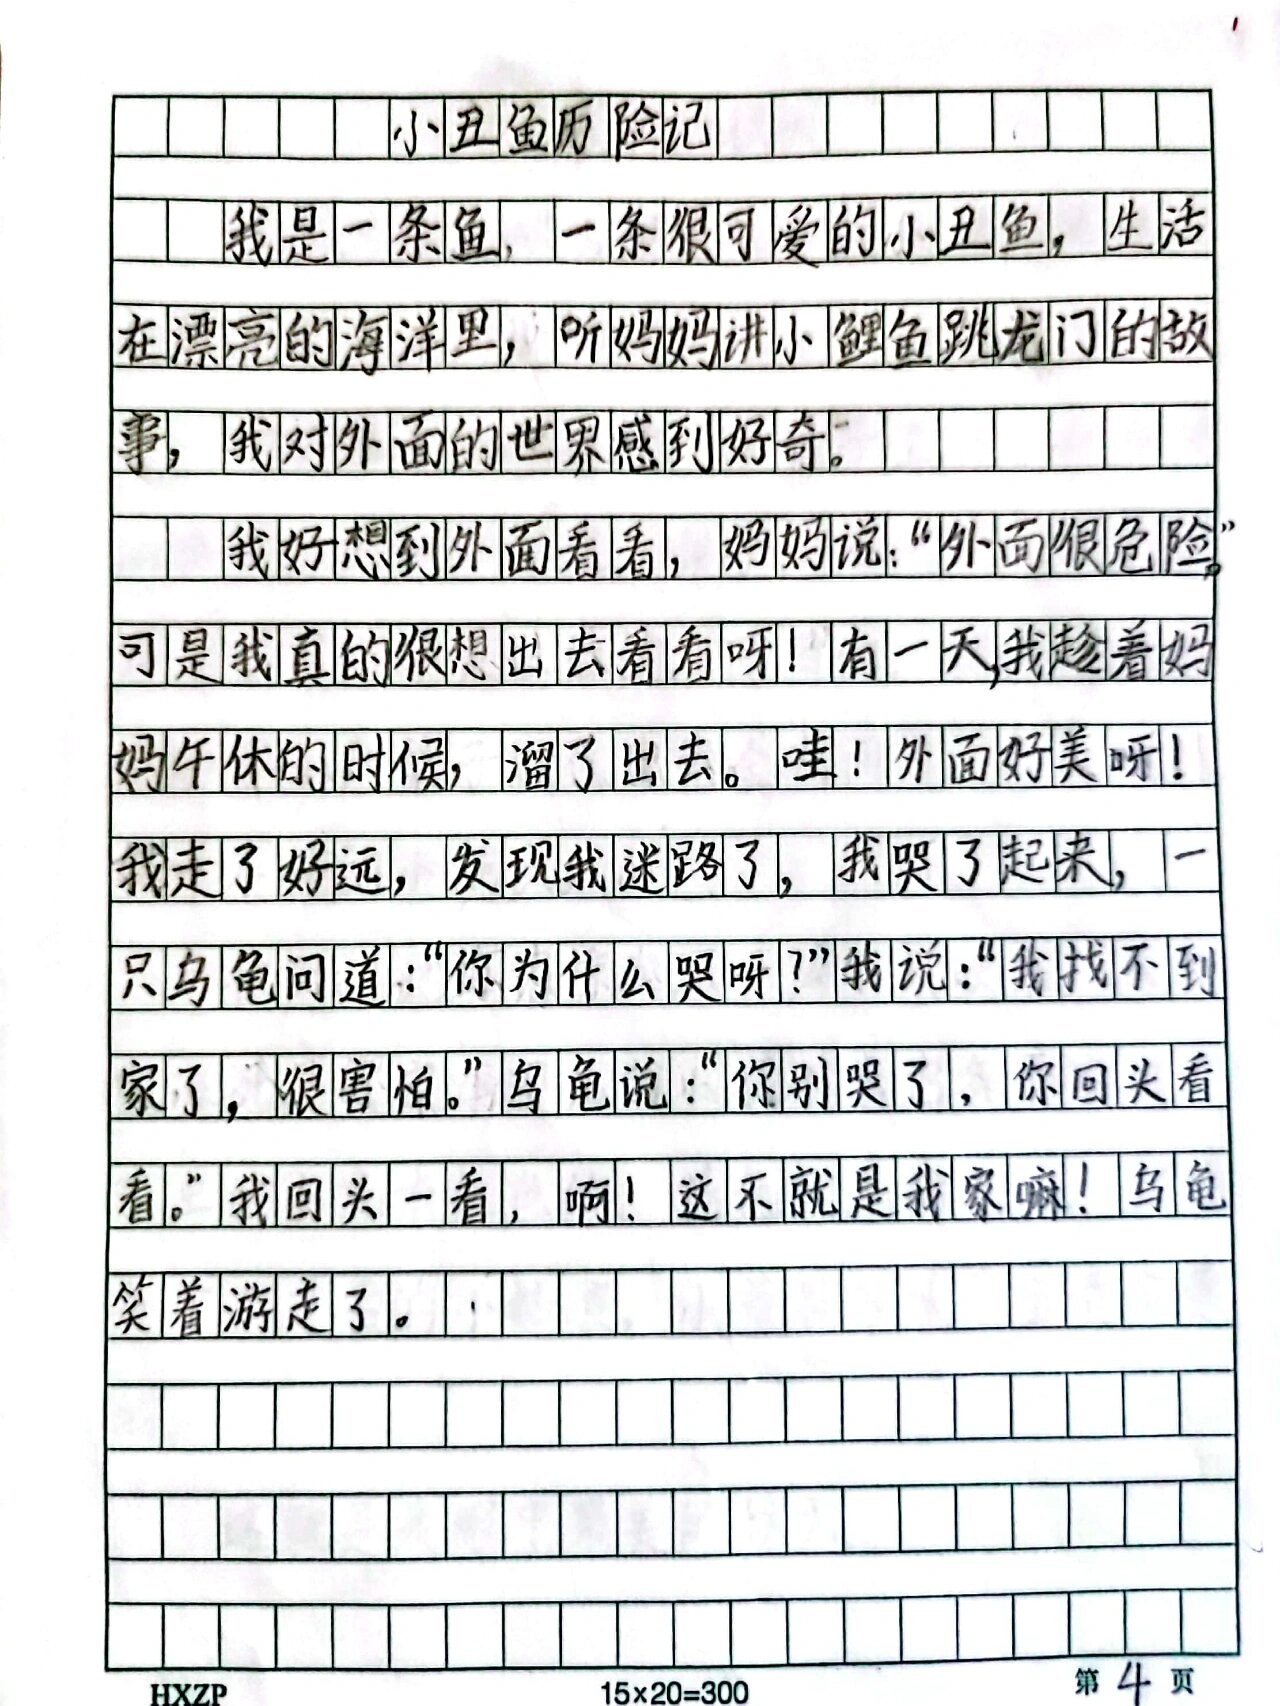 小丑鱼历险记
我是一条鱼，一条很可爱的小丑鱼，生活
在漂亮的海洋里，听妈妈讲小鲤鱼跳龙门的故
事，我对外面的世界感到好奇。
我好想到外面看看，妈妈说：“外面很危险。”
可是我真的很想出去看看呀！有一天，我趁着妈
妈午休的时候，溜了出去。哇！外面好美呀！
我走了好远，发现我迷路了，我哭了起来，一
只乌龟问道：“你为什么哭呀？”我说：“我找不到
家了，很害怕。”乌龟说：“你别哭了，你回头看
看。”我回头一看，啊！这不就是我家嘛！乌龟
笑着游走了。
HXZP 15×20=300 第4页